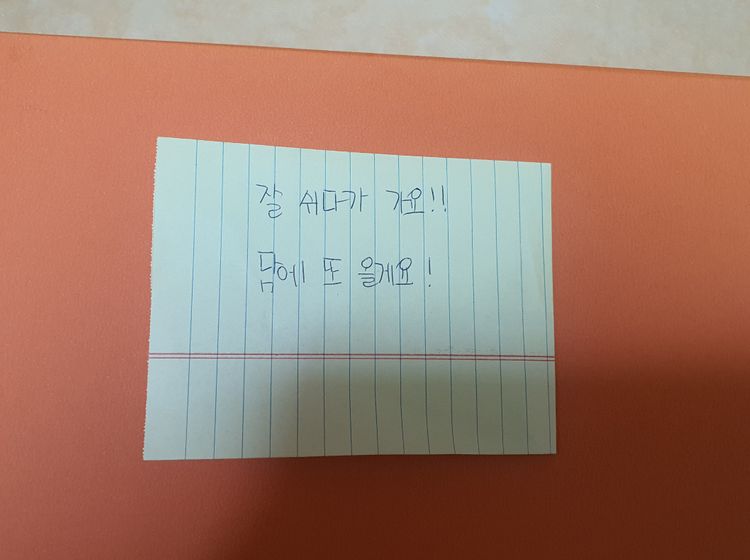 잘 쉬다가 가요!!
담에 또 올게요!